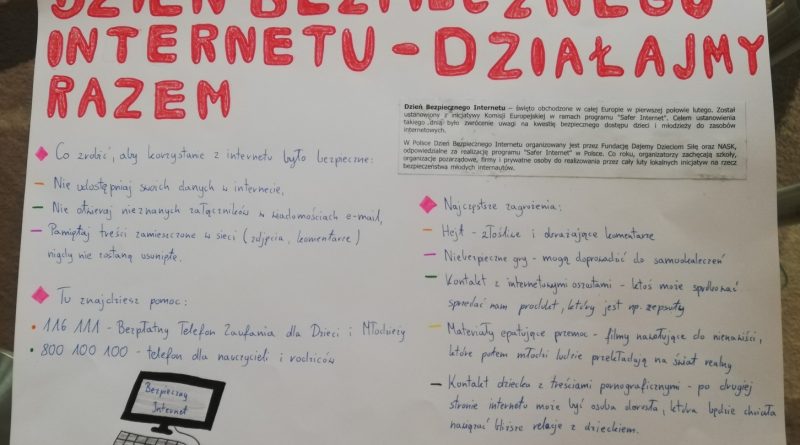 DZIEŃ BEZPIECZNEGO
INTERNETU - DZIAŁAJMY
RAZEM
Dzień Bezpiecznego Internetu – święto obchodzone w całej Europie w pierwszej połowie lutego. Został
ustanowiony z inicjatywy Komisji Europejskiej w ramach programu "Safer Internet". Celem ustanowienia
takiego „dnia było zwrócenie uwagi na kwestię bezpiecznego dostępu dzieci i młodzieży do zasobów
internetowych.
W Polsce Dzień Bezpiecznego Internetu organizowany jest przez Fundację Dajemy Dzieciom Siłę oraz NASK,
odpowiedzialne za realizację programu "Safer Internet" w Polsce. Co roku, organizatorzy zachęcają szkoły,
organizacje pozarządowe, firmy i prywatne osoby do realizowania przez cały luty lokalnych inicjatyw na rzecz
bezpieczeństwa młodych internautów.
Co zrobić, aby korzystanie z internetu było bezpieczne:
- Nie udostępniaj swoich danych w internecie,
- Nie otwieraj nieznanych załączników w wiadomościach e-mail,
- Pamiętaj treści zamieszczone w sieci (zdjęcia, komentarze)
nigdy nie zostaną usunięte.
Tu znajdziesz pomoc:
• 116 111 - Bezpłatny Telefon Zaufania dla Dzieci i Młodzieży
• 800 100 100 - telefon dla nauczycieli i rodziców
Bezpieczny
Internet
Najczęstsze zagrożenia:
- Hejt - złośliwe i obrażające komentarze
- Niebezpieczne gry - mogą doprowadzić do samookaleczeń
- Kontakt z internetowymi oszustami - ktoś może spróbować
sprzedać nam produkt, który jest np. zepsuty
- Materiały epatujące przemoc - filmy nawołujące do nienawiści,
które potem młodzi ludzie przekładają na świat realny
- Kontakt dziecka z treściami pornograficznymi - po drugiej
stronie internetu może być osoba dorosła, która będzie chciała
nawiązać bliższe relacje z dzieckiem.